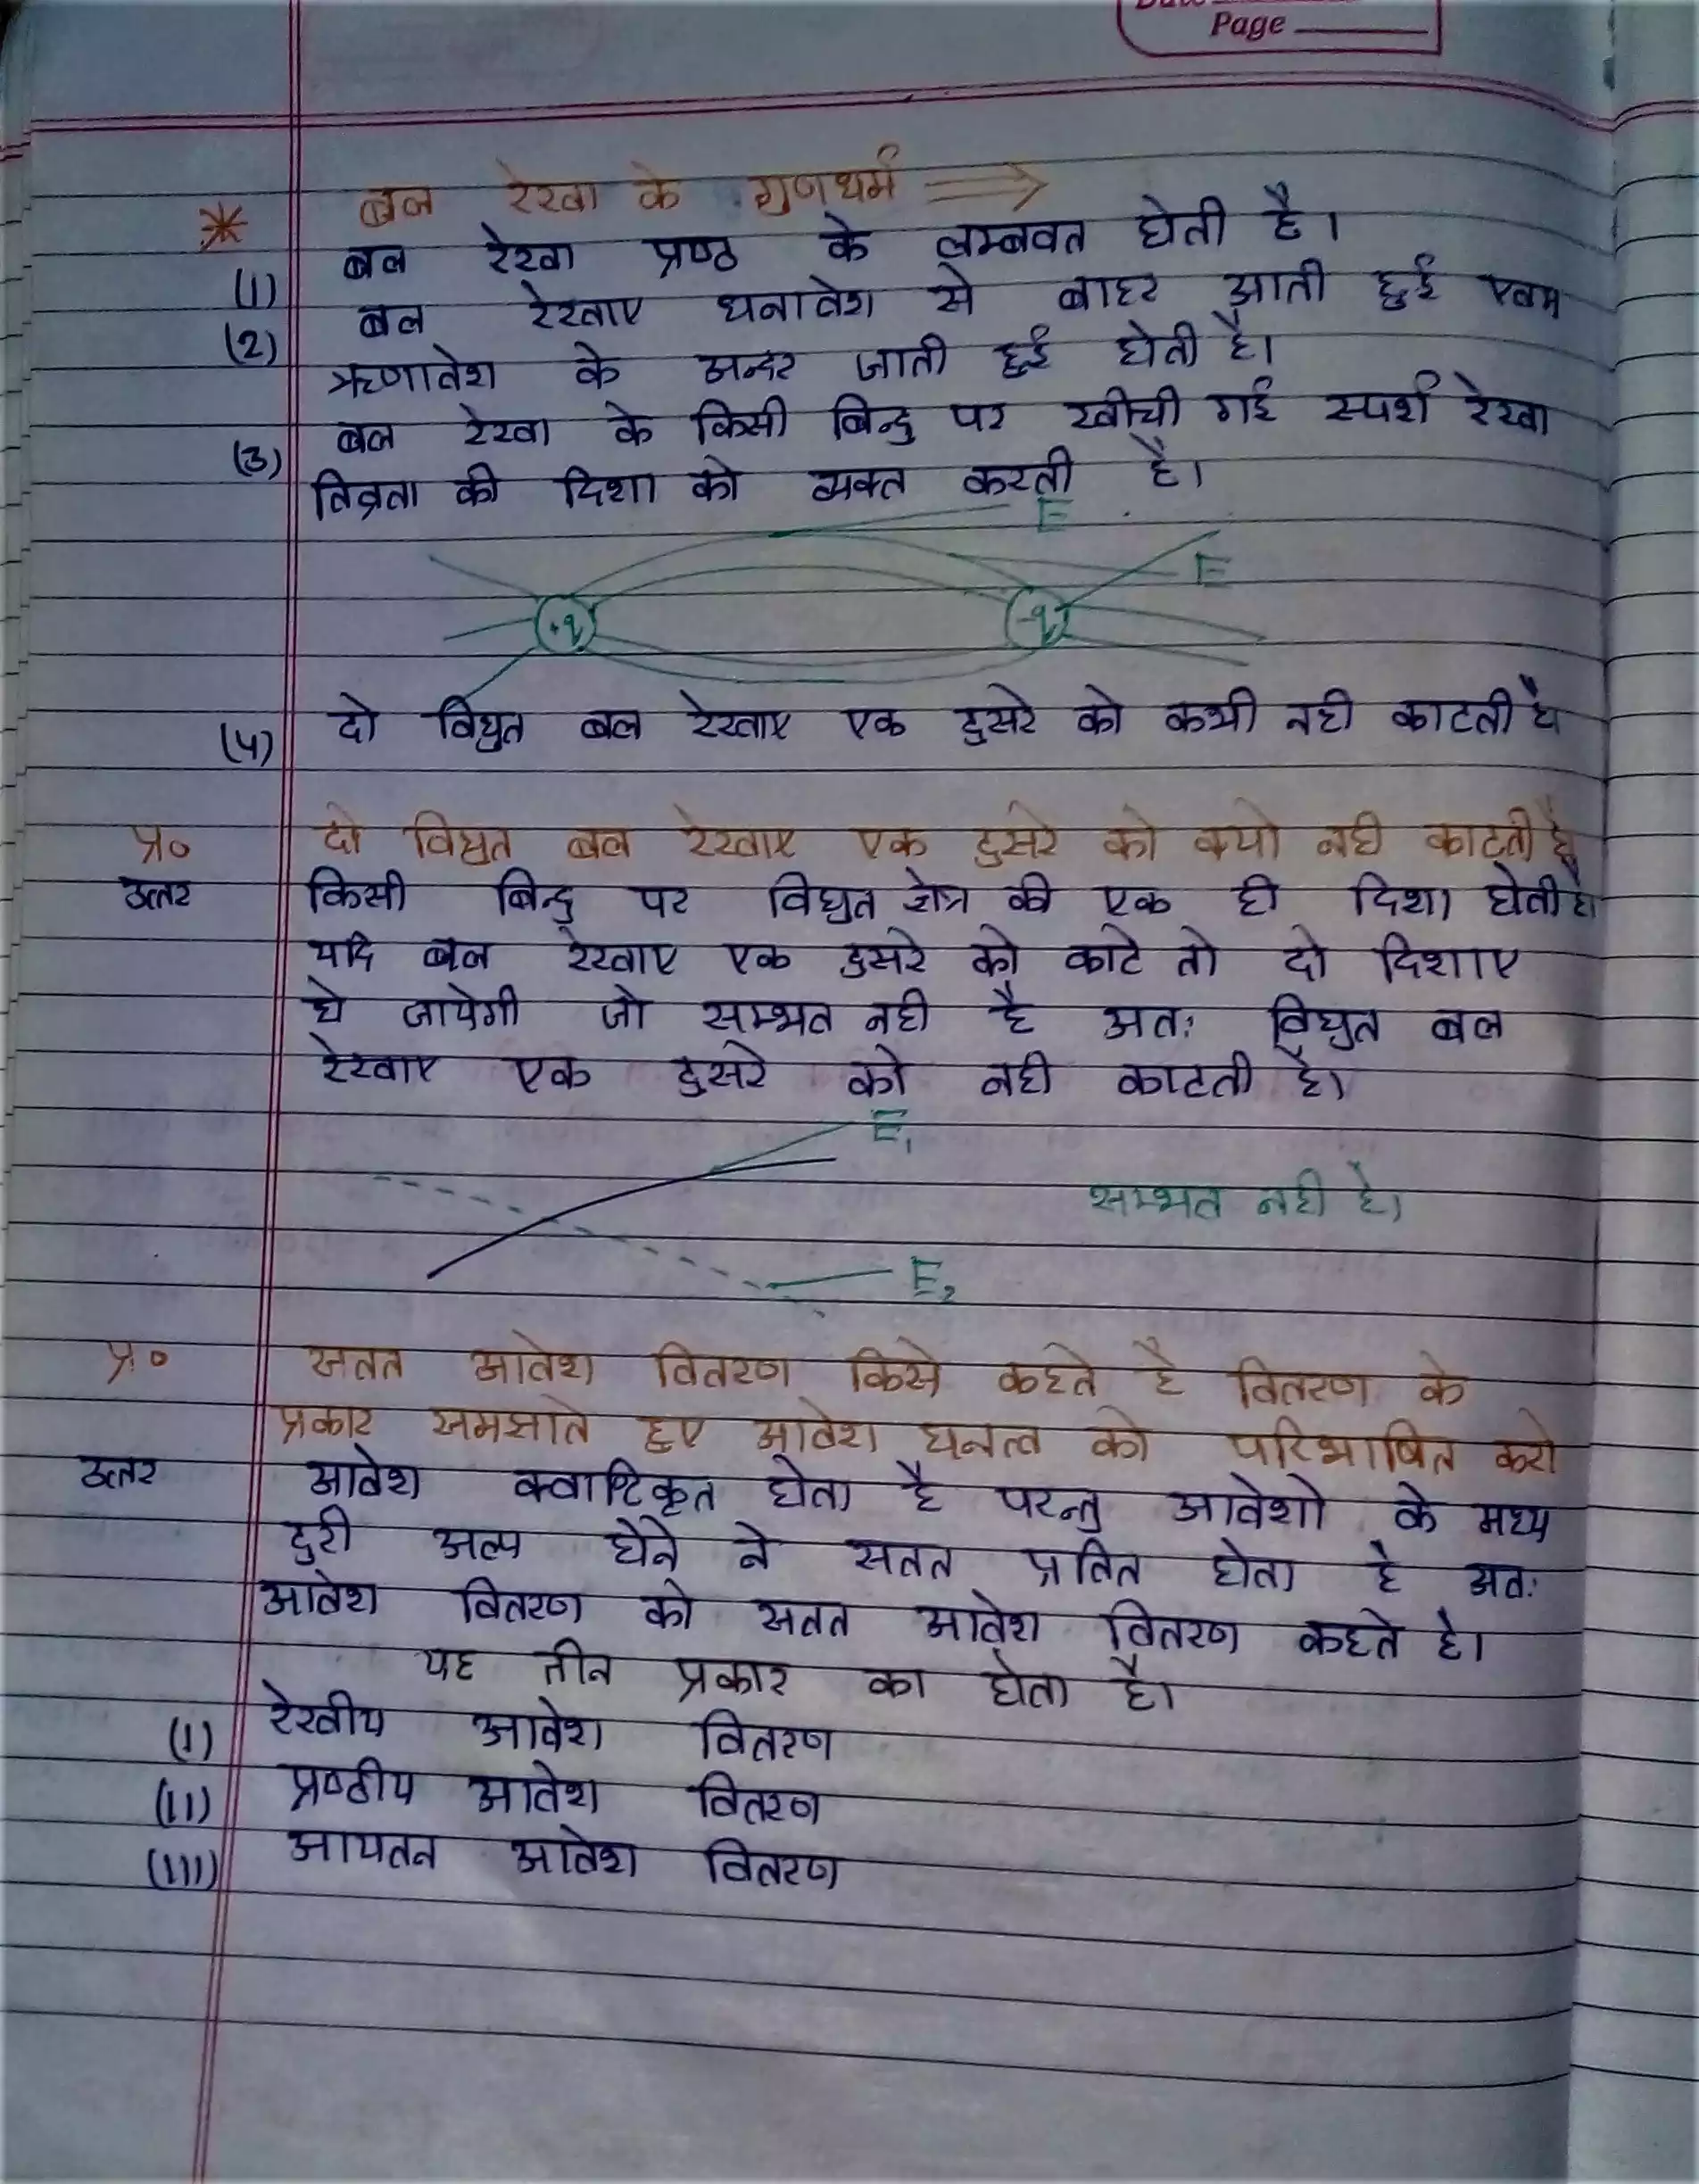 Page
* बल रेखा के गुणधर्म ⟹
(1) बल रेखा प्रष्ठ के लम्बवत होती है।
(2) बल रेखाए धनावेश से बाहर आती हुई एवम
ऋणावेश के अन्दर जाती हुई होती है।
(3) बल रेखा के किसी बिन्दु पर खीची गई स्पर्श रेखा
तिव्रता की दिशा को व्यक्त करती है।
E
E
+q -q
(4) दो विधुत बल रेखाए एक दुसरे को कभी नही काटती है
प्र० दो विधुत बल रेखाए एक दुसरे को क्यो नही काटती है
उत्तर किसी बिन्दु पर विधुत क्षेत्र की एक ही दिशा होती है।
यदि बल रेखाए एक दुसरे को काटे तो दो दिशाए
हो जायेगी जो सम्भव नही है अतः विधुत बल
रेखाए एक दुसरे को नही काटती है।
E₁
सम्भव नही है।
E₂
प्र० सतत आवेश वितरण किसे कहते है वितरण के
प्रकार समझाते हुए आवेश घनत्व को परिभाषित करो
उत्तर आवेश क्वाण्टिकृत होता है परन्तु आवेशो के मध्य
दुरी अल्प होने ने सतत प्रतित होता है अतः
आवेश वितरण को सतत आवेश वितरण कहते है।
यह तीन प्रकार का होता है।
(I) रेखीय आवेश वितरण
(II) प्रष्ठीय आवेश वितरण
(III) आयतन आवेश वितरण